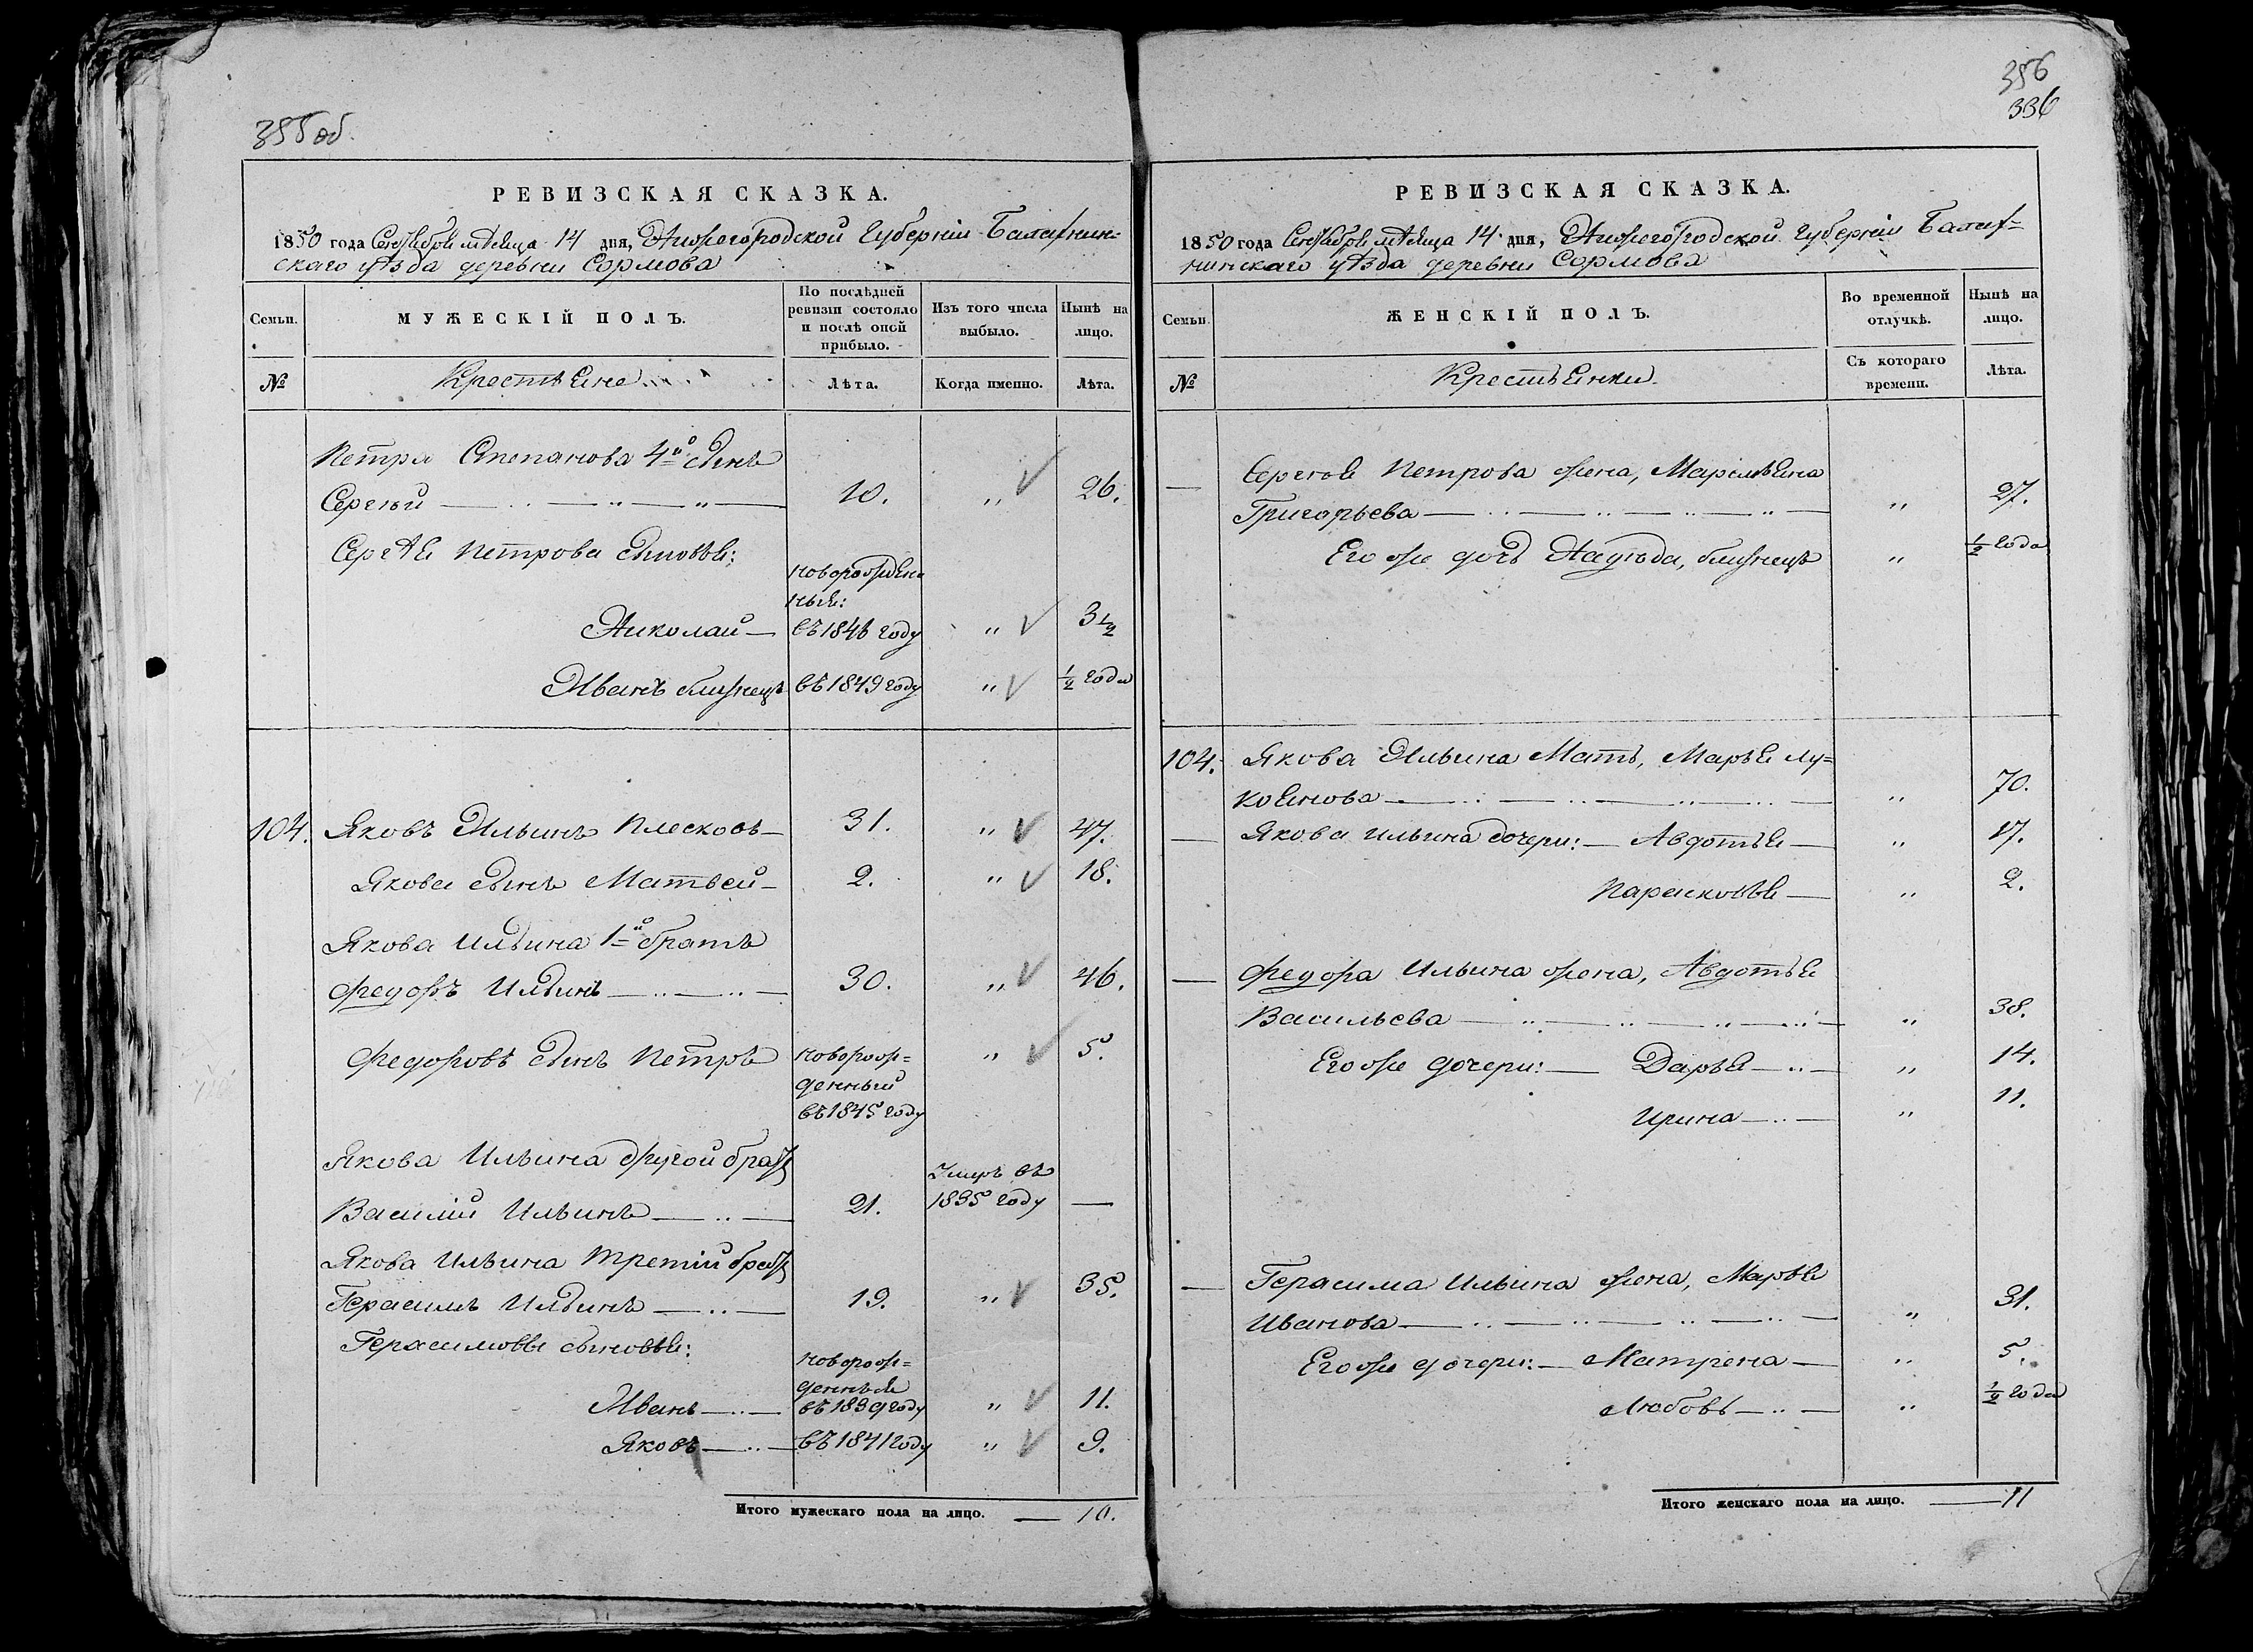 355 об.
РЕВИЗСКАЯ СКАЗКА.
1850 года Сентября мѣсяца 14 дня, Нижегородской Губерніи Балахнин-
скаго уѣзда деревни Сормова
Семьи.
МУЖЕСКІЙ ПОЛЪ.
По послѣдней ревизіи состояло и послѣ оной прибыло.
Изъ того числа выбыло.
Нынѣ на лицо.
№
Крестьяне
Лѣта.
Когда именно.
Лѣта.
Петра Степанова 4й сынъ
Сергѣй 10. " 26.
Сергѣя Петрова сыновья:
новорожден-
ныя:
Николай въ 1846 году " 3 1/2
Иванъ близнецъ въ 1849 году " 1/2 года
104. Яковъ Ильинъ Плесковъ 31. " 47.
Якова сынъ Матвей 2. " 18.
Якова Ильина 1й братъ
Федоръ Ильинъ 30. " 46.
Федоровъ сынъ Петръ новорож= " 5.
денный
въ 1845 году
Якова Ильина другой братъ
Умръ въ
Василий Ильинъ 21. 1835 году —
Якова Ильина третій братъ
Герасимъ Ильинъ 19. " 35.
Герасимовы сыновья:
новорож=
денныя
Иванъ въ 1839 году " 11.
Яковъ въ 1841 году " 9.
Итого мужескаго пола на лицо. — 10.
356
336
РЕВИЗСКАЯ СКАЗКА.
1850 года Сентября мѣсяца 14 дня, Нижегородской Губерніи Балах=
нинскаго уѣзда деревни Сормова
Семьи
ЖЕНСКІЙ ПОЛЪ.
Во временной отлучкѣ.
Нынѣ на лицо.
№
Крестьянки.
Съ котораго времени.
Лѣта.
— Сергея Петрова жена, Марѳмьяна
Григорьева " 27.
Его же дочь Надежда, близнецъ " 1/2 года
104. Якова Ильина Мать, Марья Лу=
коянова " 70.
— Якова Ильина дочери: — Авдотья " 17.
Парасковья " 2.
— Федора Ильина жена, Авдотья
Васильева " 38.
Его же дочери: — Дарья " 14.
Ирина " 11.
— Герасима Ильина жена, Марья
Иванова " 31.
Его же дочери: — Матрена " 5.
Любовь " 1/2 года
Итого женскаго пола на лицо. — 11